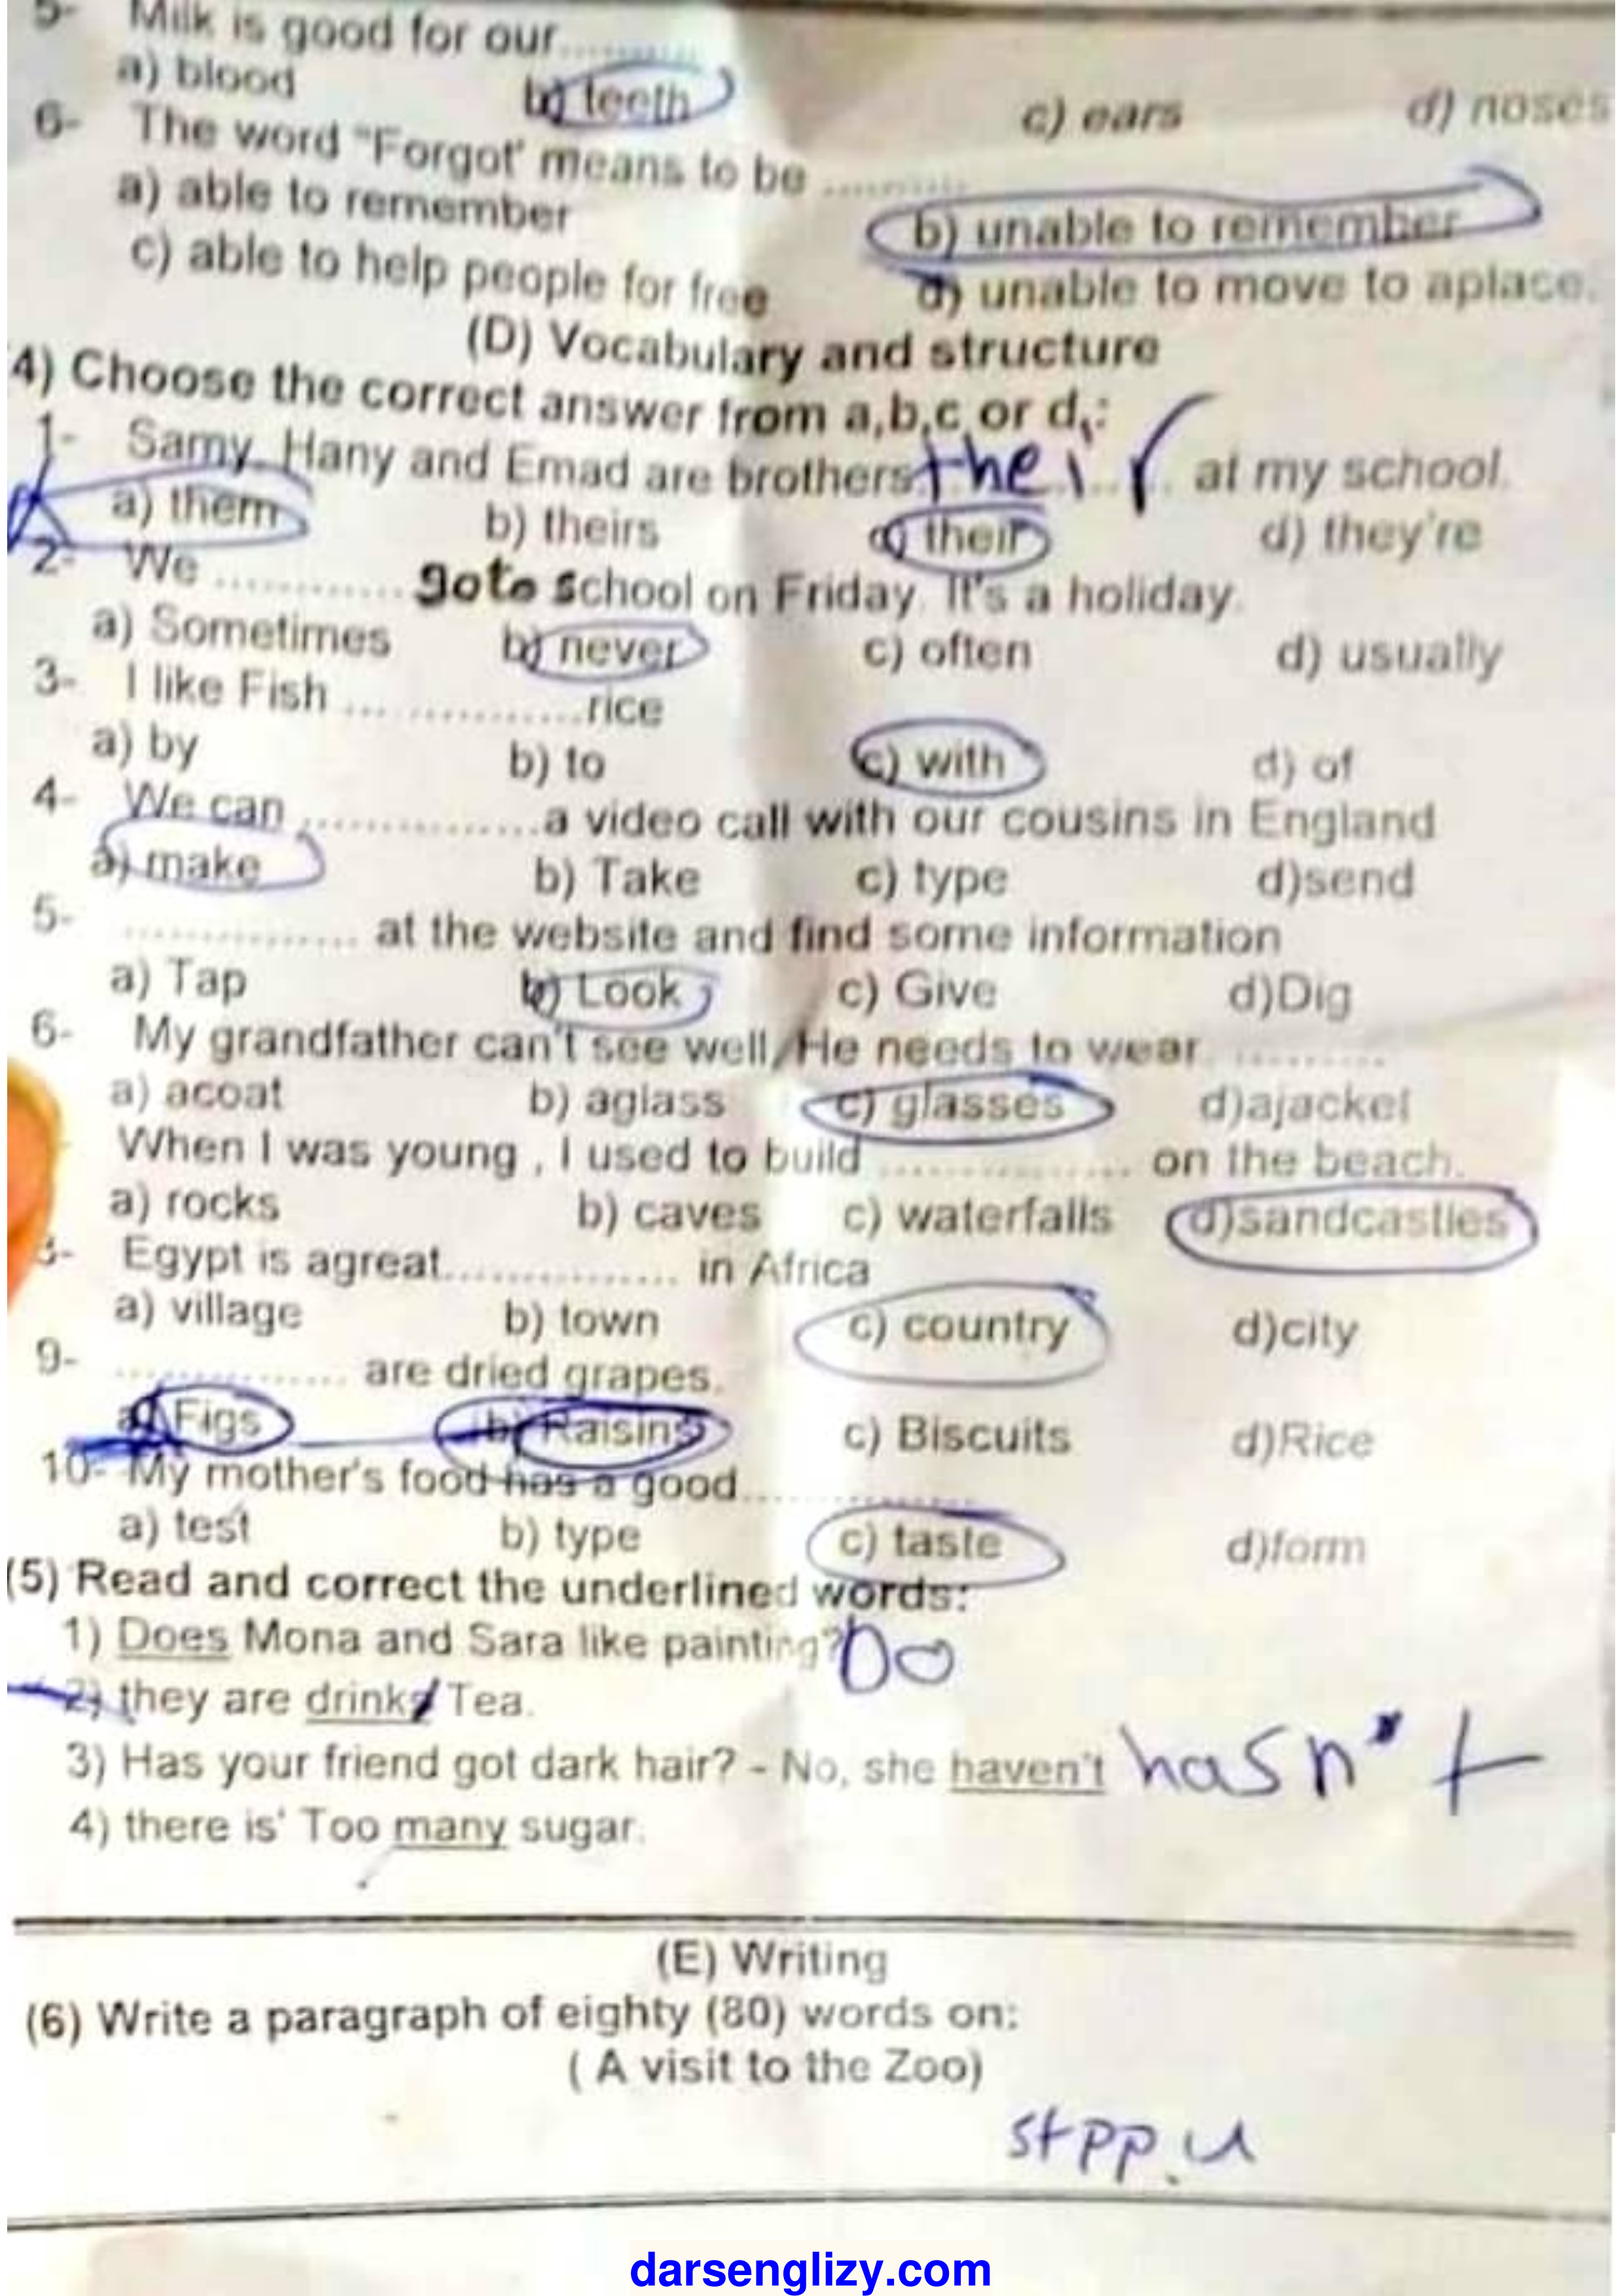 5- Milk is good for our..........
a) blood b) teeth c) ears d) noses
6- The word "Forgot' means to be ..........
a) able to remember b) unable to remember
c) able to help people for free d) unable to move to aplace.
(D) Vocabulary and structure
4) Choose the correct answer from a,b,c or d,:
1- Samy, Hany and Emad are brothers their at my school.
a) them b) theirs c) their d) they're
2- We ............. goto school on Friday. It's a holiday.
a) Sometimes b) never c) often d) usually
3- I like Fish ... ............rice
a) by b) to c) with d) of
4- We can ................a video call with our cousins in England
a) make b) Take c) type d)send
5- ............... at the website and find some information
a) Tap b) Look c) Give d)Dig
6- My grandfather can't see well, He needs to wear ..........
a) acoat b) aglass c) glasses d)ajacket
When I was young , I used to build ................ on the beach.
a) rocks b) caves c) waterfalls d)sandcastles
8- Egypt is agreat............... in Africa
a) village b) town c) country d)city
9- ............... are dried grapes.
a) Figs b) Raisins c) Biscuits d)Rice
10- My mother's food has a good...............
a) test b) type c) taste d)form
(5) Read and correct the underlined words:
1) Does Mona and Sara like painting? Do
2) they are drinks Tea.
3) Has your friend got dark hair? - No, she haven't hasn't
4) there is' Too many sugar.
(E) Writing
(6) Write a paragraph of eighty (80) words on:
( A visit to the Zoo)
darsenglizy.com